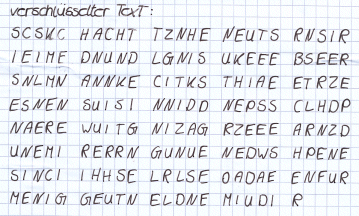 verschlüsselter Text:
SCSKC HACHT TZNHE NEUTS RNSIR
IEIME DNUND LGNIS UKEEE BSEER
SNLMN ANNKE CITKS THIAE ETRZE
ESNEN SUISI NNIDD NEPSS CLHDP
NAERE WUITG NIZAG RZEEE ARNZD
UNEMI RERRN GUNUE NEDWS HPENE
SINCI IHHSE LRLSE OADAE ENFUR
MENIG GEUTN ELDNE MIUDI R